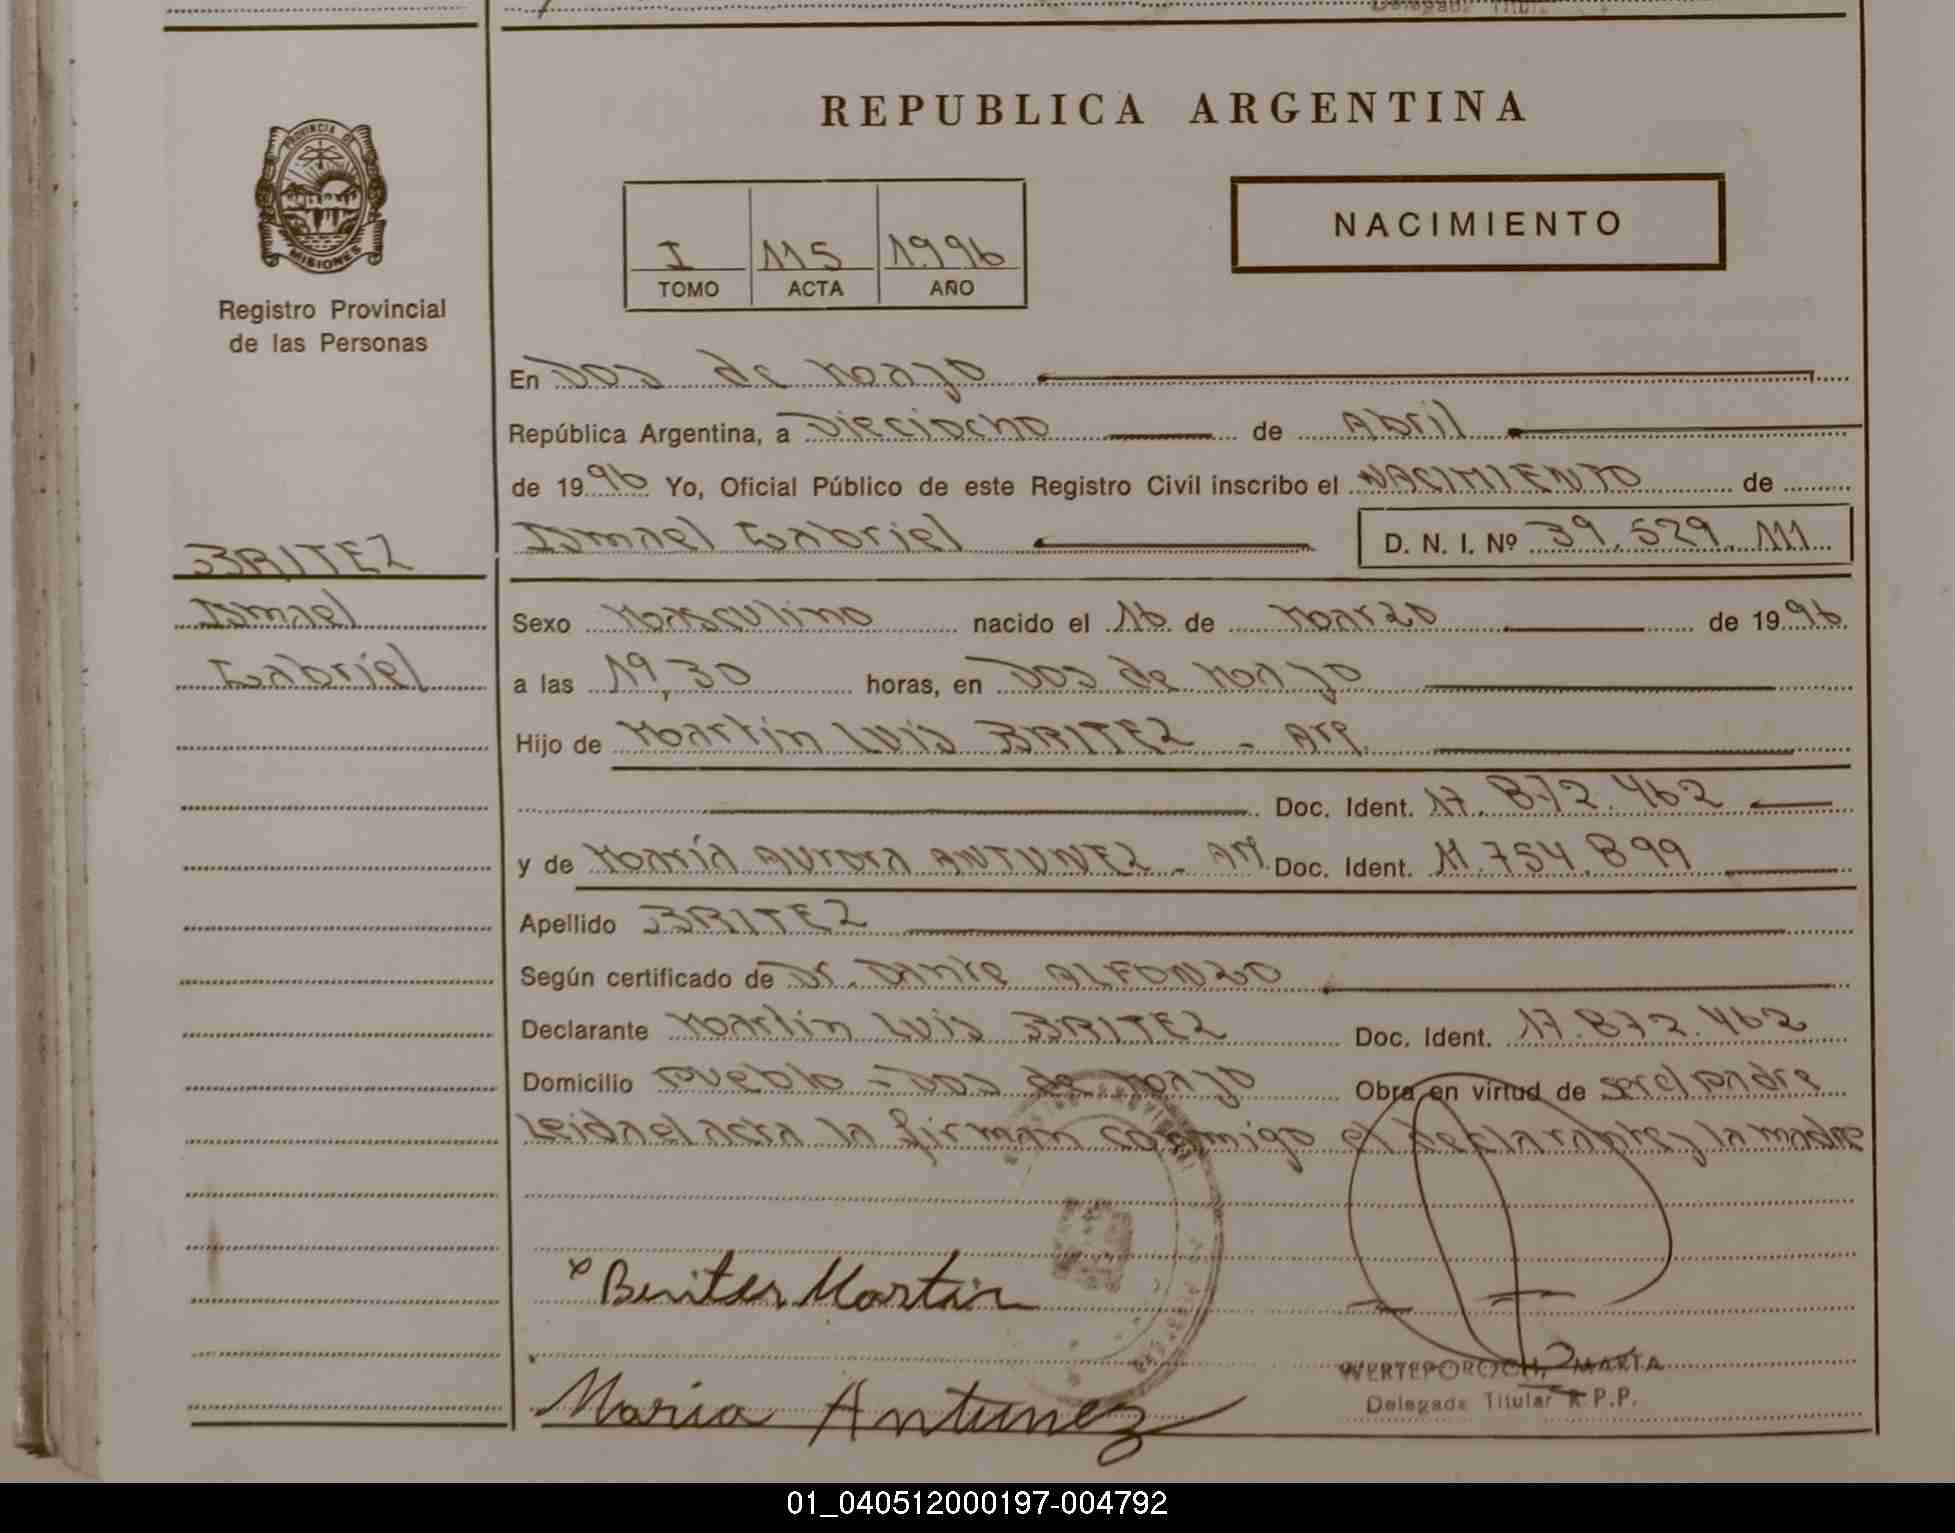 REPUBLICA ARGENTINA
PROVINCIA DE
MISIONES
Registro Provincial
de las Personas
I 115 1996
TOMO ACTA AÑO
NACIMIENTO
En Dos de Mayo
República Argentina, a Dieciocho de Abril
de 1996 Yo, Oficial Público de este Registro Civil inscribo el NACIMIENTO de
Ismael Gabriel D. N. I. Nº 39.529.111
BRITEZ
Ismael
Gabriel
Sexo Masculino nacido el 16 de Marzo de 1996
a las 19,30 horas, en Dos de Mayo
Hijo de Martín Luis BRITEZ - Arg.
Doc. Ident. 17.872.462
y de María Aurora ANTUNEZ - Arg. Doc. Ident. 11.754.899
Apellido BRITEZ
Según certificado de Dr. Dante ALFONZO
Declarante Martín Luis BRITEZ Doc. Ident. 17.872.462
Domicilio Pueblo - Dos de Mayo Obra en virtud de ser el padre
Leida el acta la firman conmigo el declarante y la madre
x Benites Martin
Maria Antunez
WERTEPOROCH, MARTA
Delegada Titular R.P.P.
01_040512000197-004792